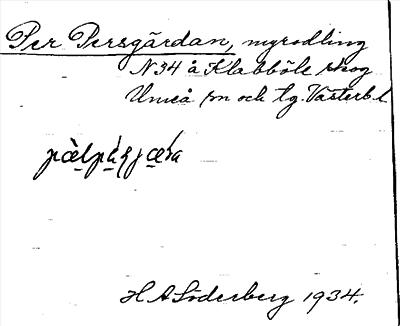 Per Persgärdan, myrodling
N34 å Klabböle skog
Umeå sn och tg. Västerb. l.
H A Söderberg 1934.